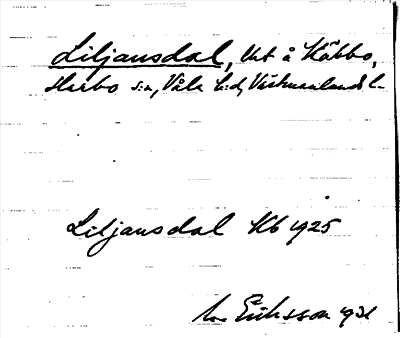 Liljansdal, Uvt å Käbbo,
Harbo s:n, Våla h:d, Västmanlands l.
Liljansdal Kb 1925
Eriksson 1931